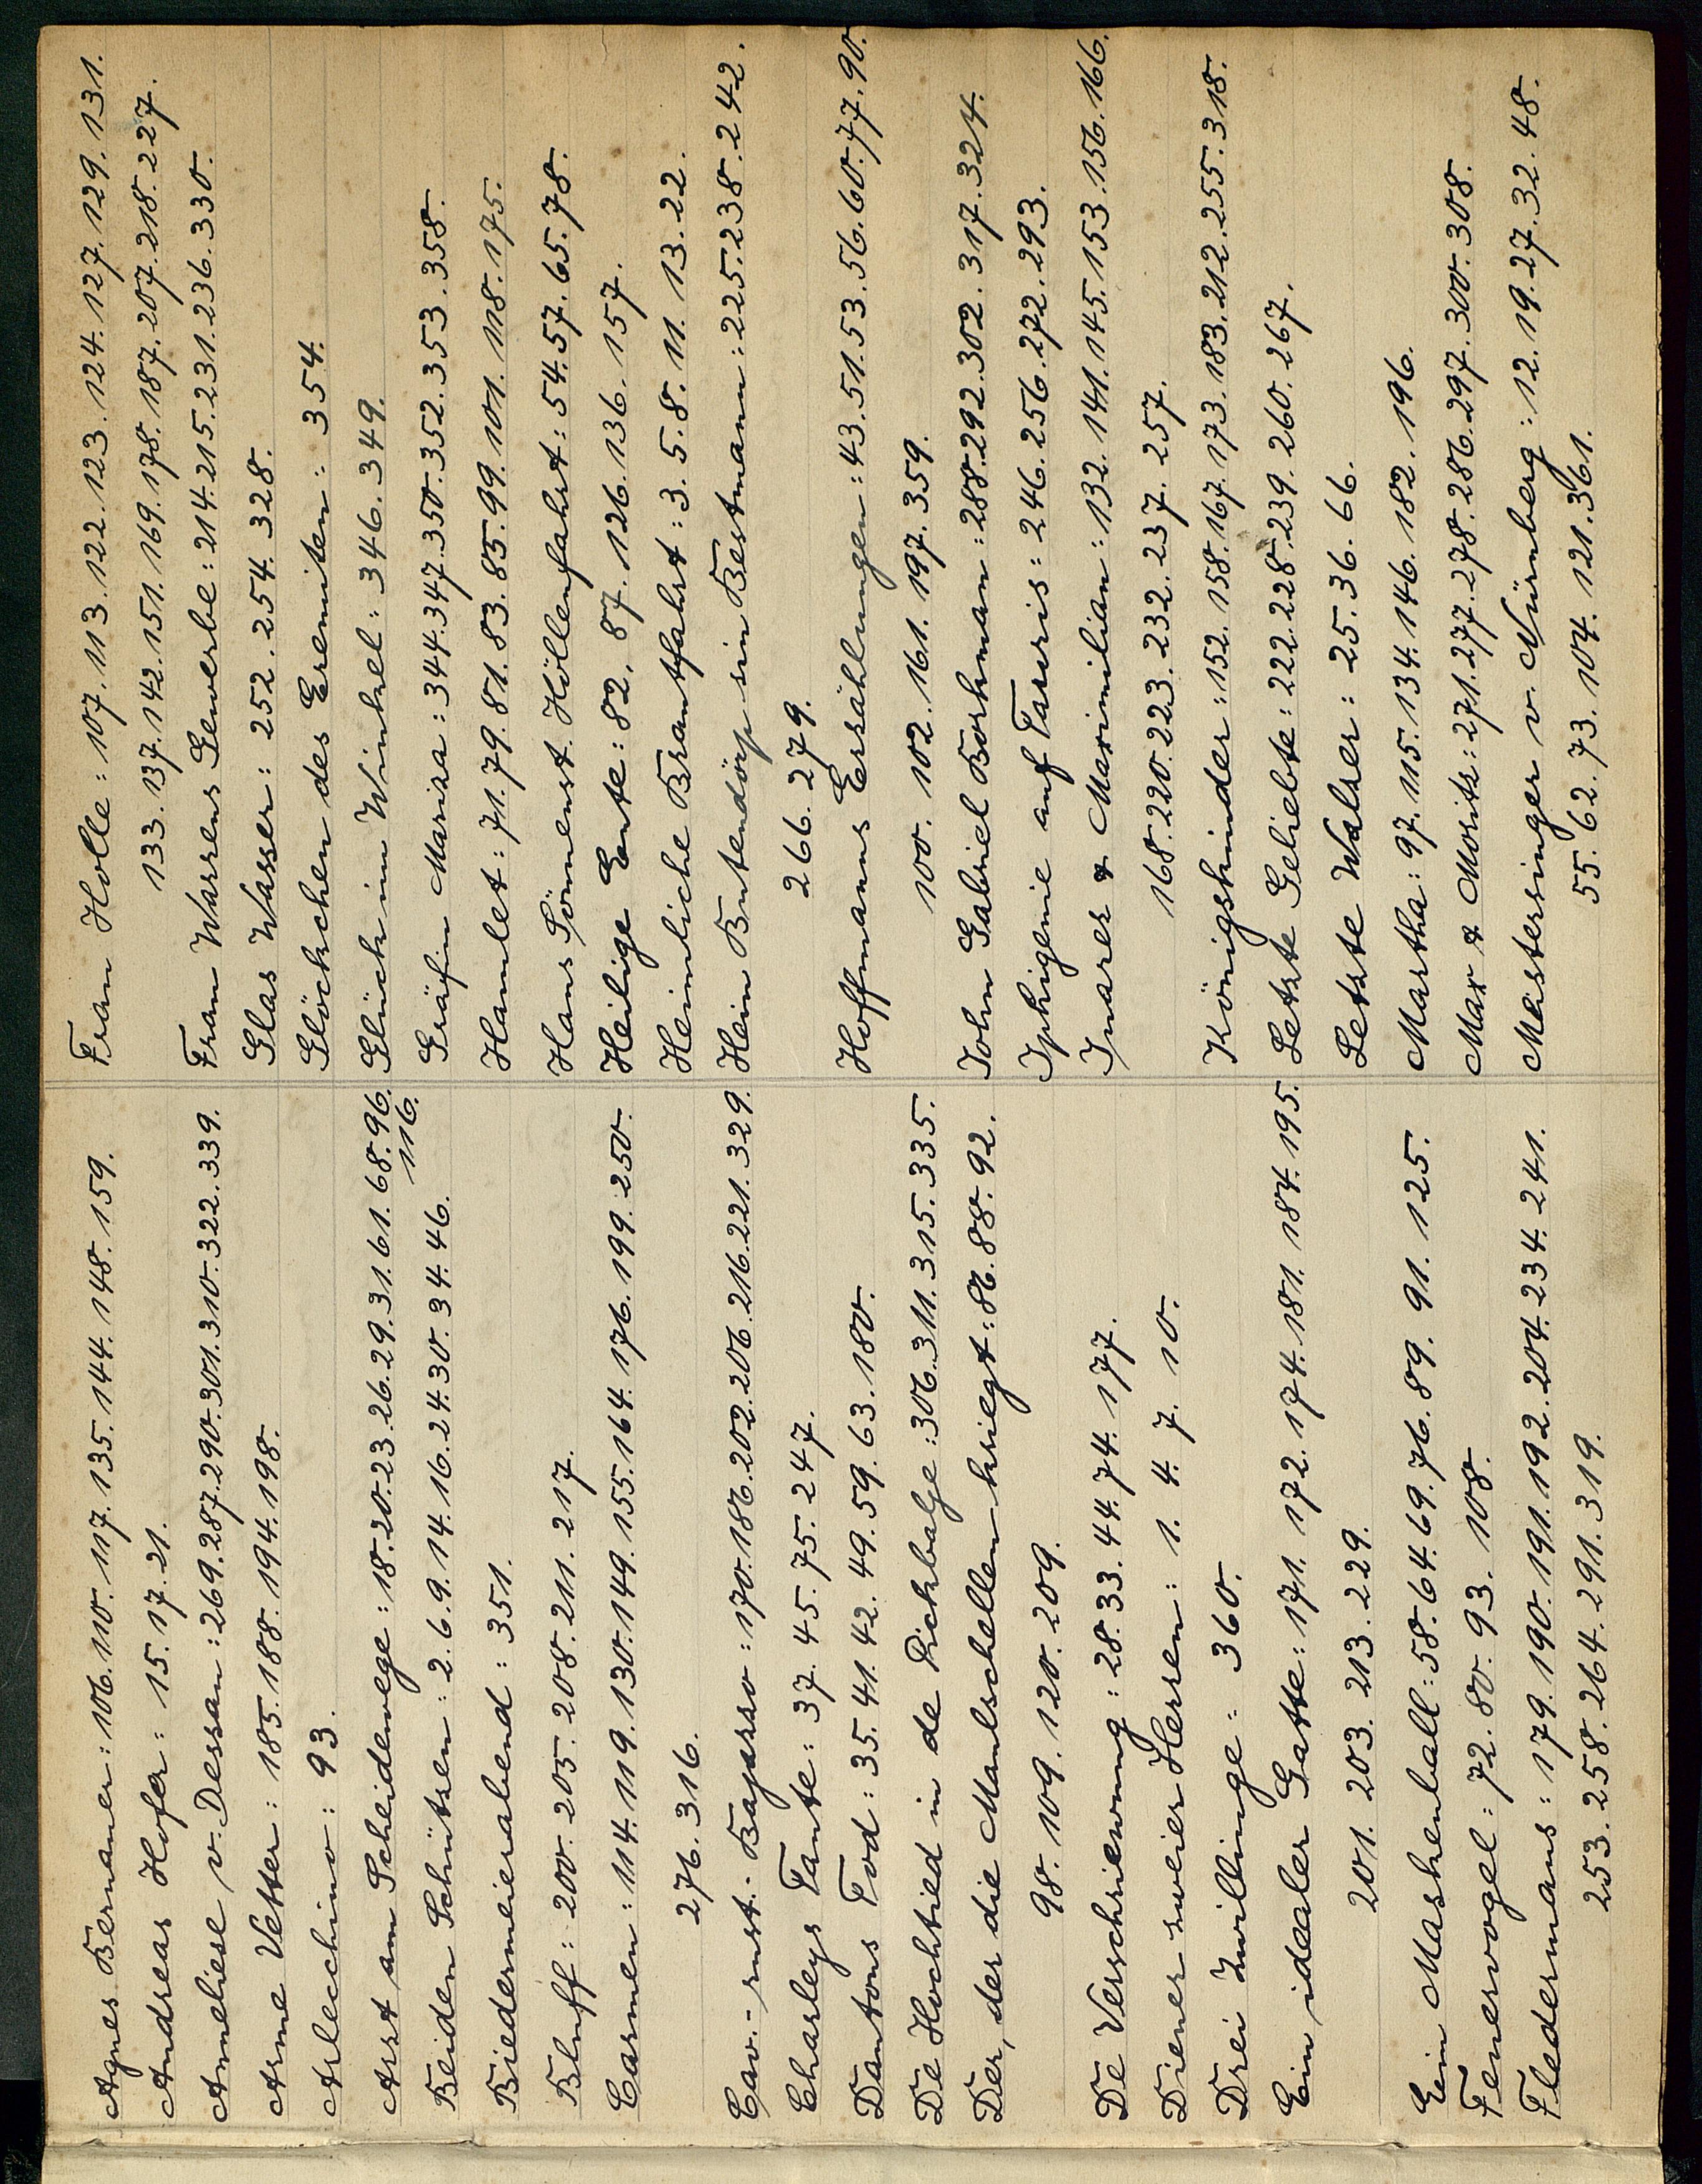 Agnes Bernauer: 106. 110. 117. 135. 144. 148. 159.
Andreas Hofer: 15. 17. 21.
Anneliese v. Dessau: 269. 287. 290. 301. 310. 322. 339.
Arme Vetter: 185. 188. 194. 198.
Arlecchino: 93.
Arzt am Scheidewege: 18. 20. 23. 26. 29. 31. 61. 68. 96.
116.
Beiden Schützen: 2. 6. 9. 14. 16. 24. 30. 34. 46.
Biedermeierabend: 351.
Bluff: 200. 205. 208. 211. 217.
Carmen: 114. 119. 130. 149. 155. 164. 176. 199. 250.
276. 316.
Cav.-rust.-Bajazzo: 170. 186. 202. 206. 216. 221. 329.
Charleys Tante: 37. 45. 75. 247.
Dantons Tod: 35. 41. 42. 49. 59. 63. 180.
De Hochtied in de Pickbalje: 306. 311. 315. 335.
Der, der die Maulschellen kriegt: 86. 88. 92.
98. 109. 120. 209.
De Verschriewung: 28. 33. 44. 74. 177.
Diener zweier Herren: 1. 4. 7. 10.
Drei Zwillinge: 360.
Ein idealer Gatte: 171. 172. 174. 181. 184. 195.
201. 203. 213. 229.
Ein Maskenball: 58. 64. 69. 76. 89. 91. 125.
Feuervogel: 72. 80. 93. 108.
Fledermaus: 179. 190. 191. 192. 204. 234. 241.
253. 258. 264. 291. 319.
Frau Holle: 107. 113. 122. 123. 124. 127. 129. 131.
133. 137. 142. 151. 169. 178. 187. 207. 218. 227.
Frau Warrens Gewerbe: 214. 215. 231. 236. 330.
Glas Wasser: 252. 254. 328.
Glöckchen des Eremiten: 354.
Glück im Winkel: 346. 349.
Gräfin Mariza: 344. 347. 350. 352. 353. 358.
Hamlet: 71. 79. 81. 83. 85. 99. 101. 118. 175.
Hans Sönnenst. Höllenfahrt: 54. 57. 65. 78.
Heilige Ente: 82. 87. 126. 136. 157.
Heimliche Brautfahrt: 3. 5. 8. 11. 13. 22.
Hein Butendörp sin Bestmann: 225. 238. 242.
266. 279.
Hoffmanns Erzählungen: 43. 51. 53. 56. 60. 77. 90.
100. 102. 161. 197. 359.
John Gabriel Borkman: 288. 292. 302. 317. 324.
Iphigenie auf Tauris: 246. 256. 272. 293.
Juarez & Maximilian: 132. 141. 145. 153. 156. 166.
168. 220. 223. 232. 237. 257.
Königskinder: 152. 158. 167. 173. 183. 212. 255. 318.
Letzte Geliebte: 222. 228. 239. 260. 267.
Letzte Walzer: 25. 36. 66.
Martha: 97. 115. 134. 146. 182. 196.
Max & Moritz: 271. 277. 278. 286. 297. 300. 308.
Meistersinger v. Nürnberg: 12. 19. 27. 32. 48.
55. 62. 73. 104. 121. 361.